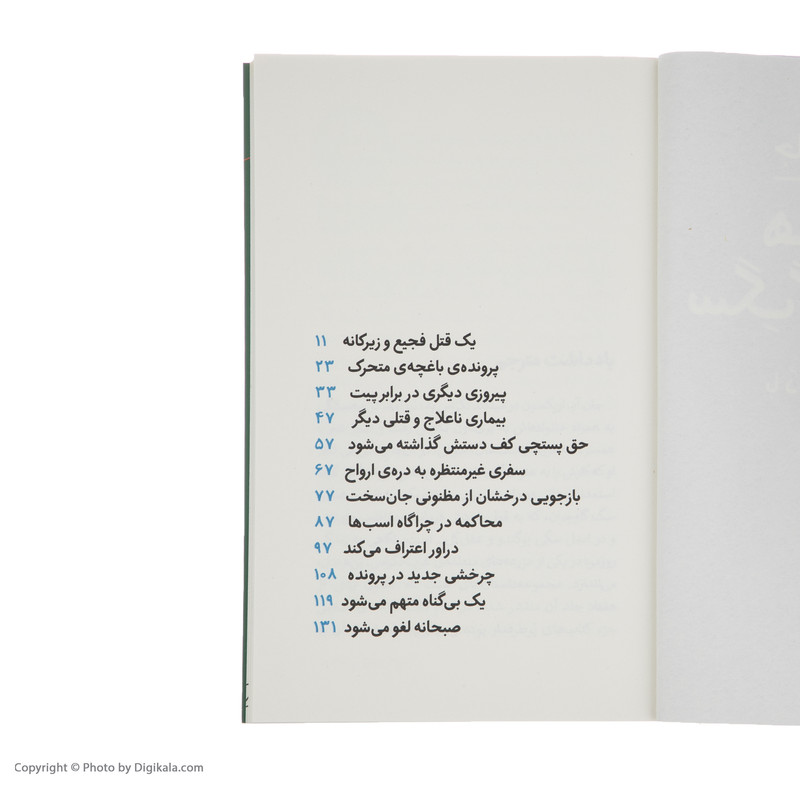 یک قتل فجیع و زیرکانه ۱۱
پرونده‌ی باغچه‌ی متحرک ۲۳
پیروزی دیگری در برابر پیت ۳۳
بیماری ناعلاج و قتلی دیگر ۴۷
حق پستچی کف دستش گذاشته می‌شود ۵۷
سفری غیرمنتظره به دره‌ی ارواح ۶۷
بازجویی درخشان از مظنونی جان‌سخت ۷۷
محاکمه در چراگاه اسب‌ها ۸۷
دراور اعتراف می‌کند ۹۷
چرخشی جدید در پرونده ۱۰۸
یک بی‌گناه متهم می‌شود ۱۱۹
صبحانه لغو می‌شود ۱۳۱
Copyright © Photo by Digikala.com